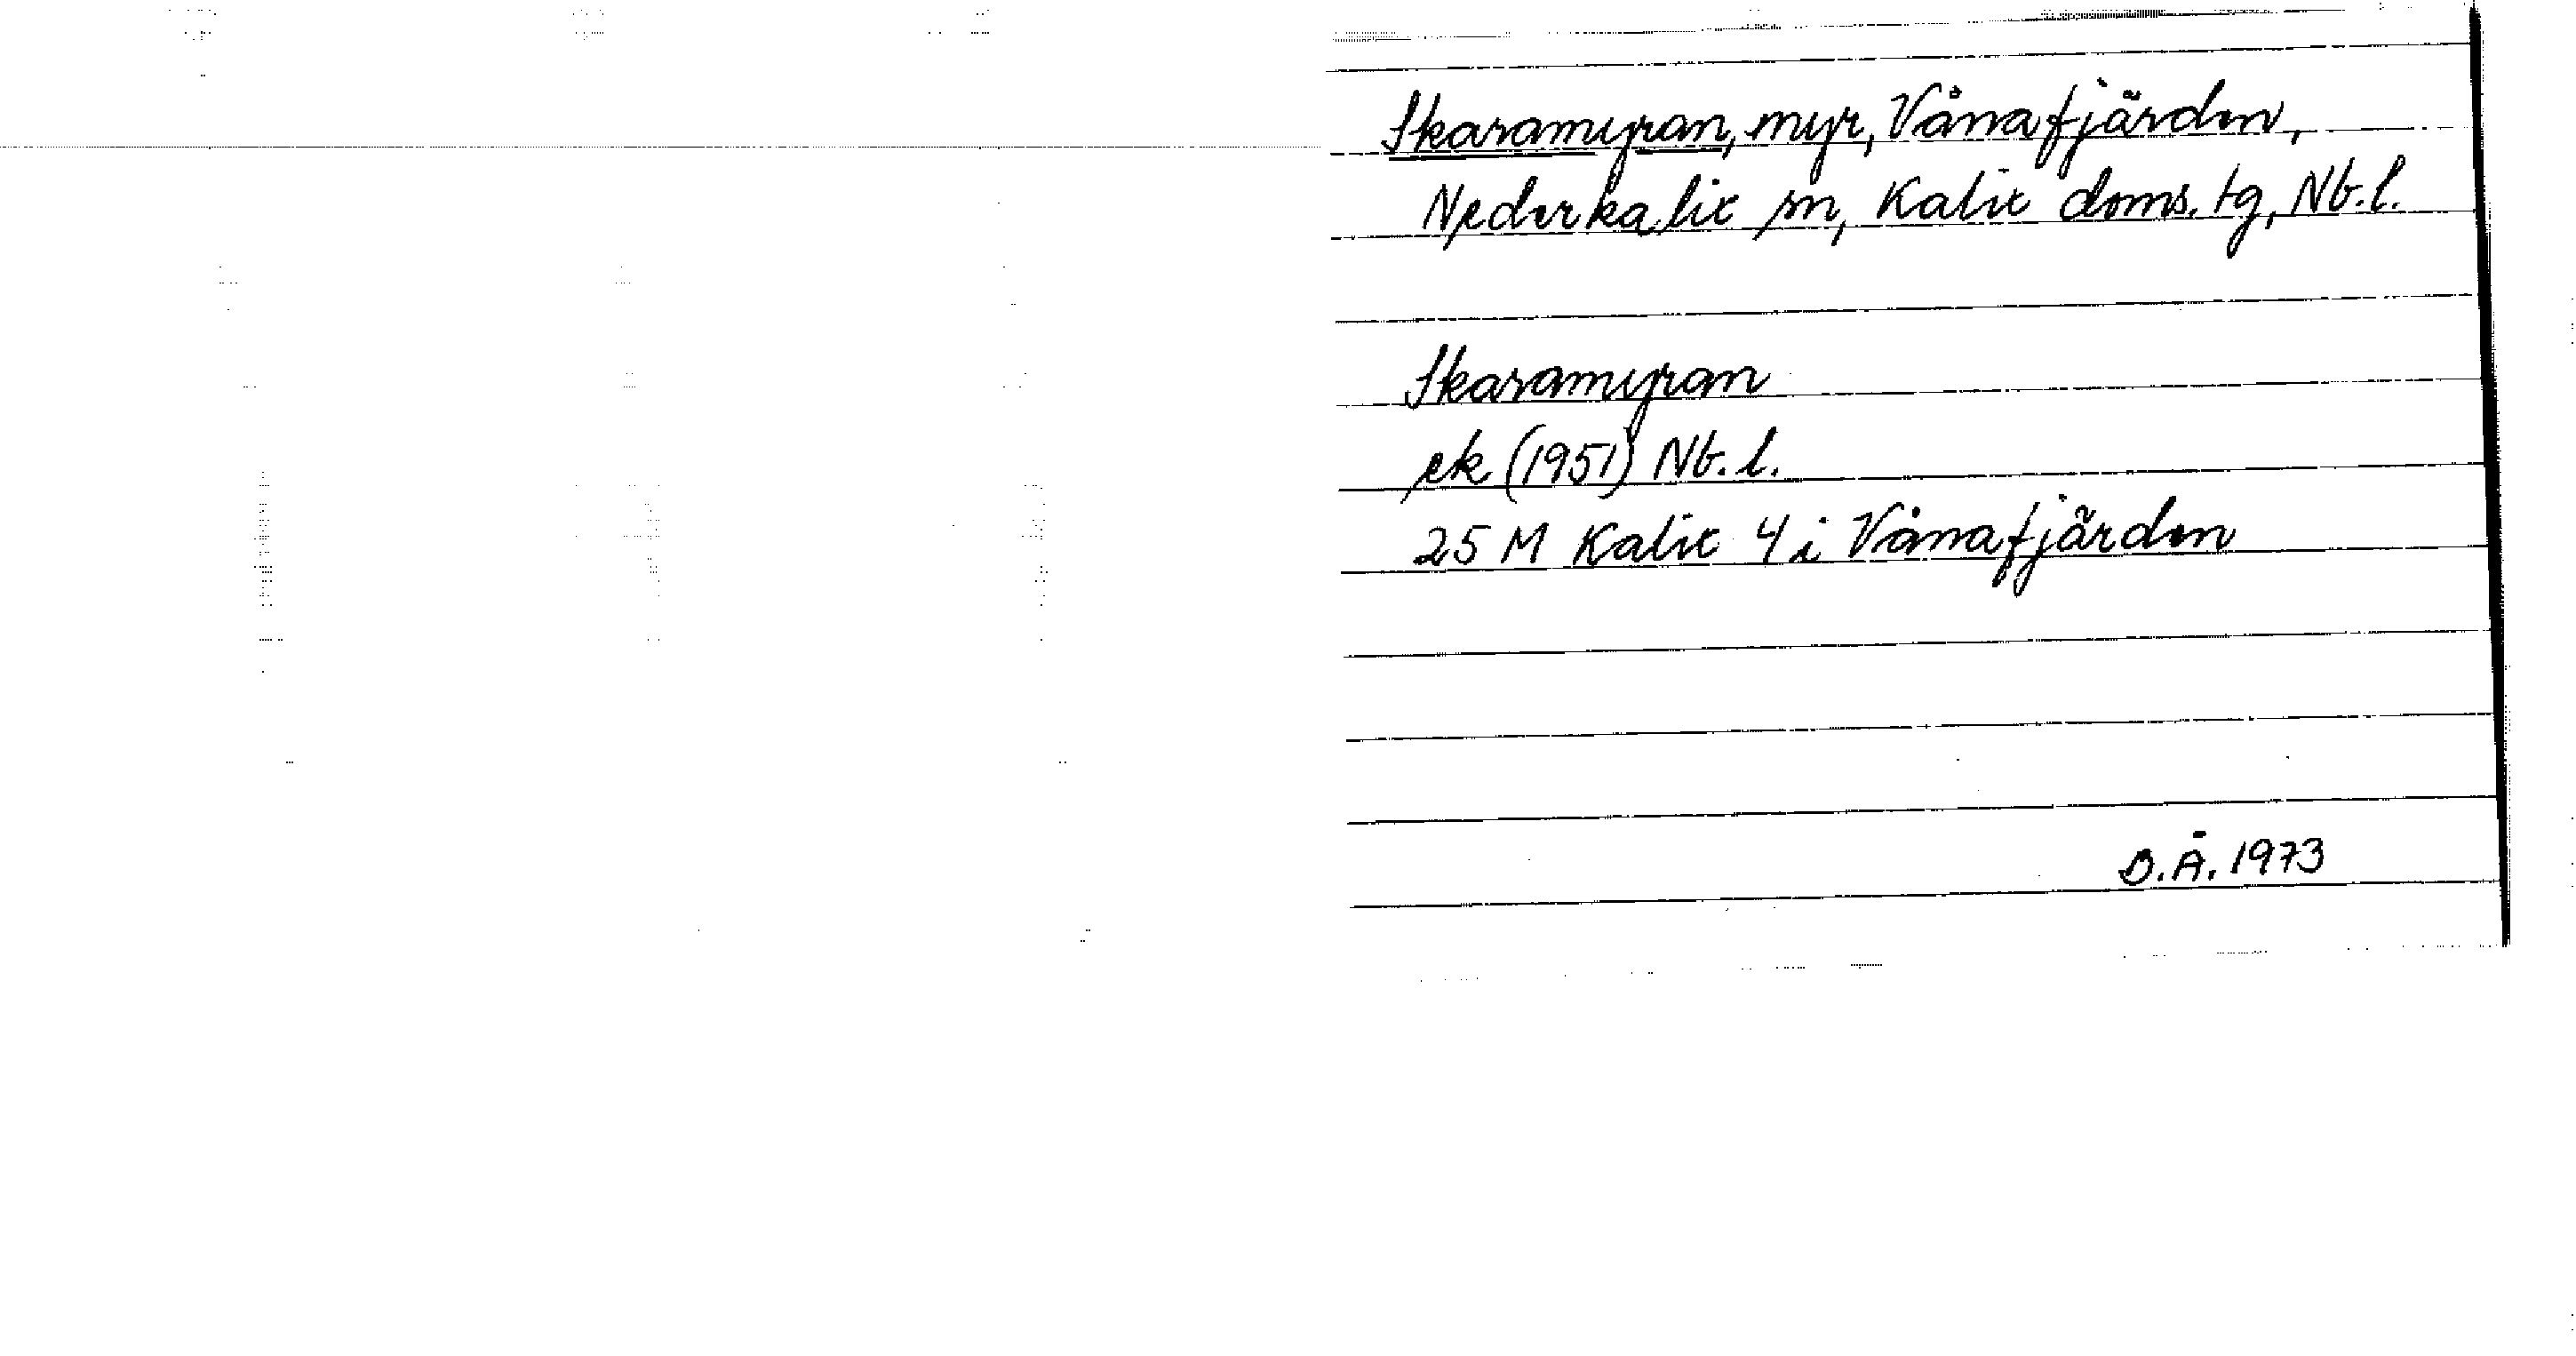 Skaramyran, myr, Vånafjärden,
Nederkalix sn, Kalix doms. tg, Nb.l.
Skaramyran
ek (1951) Nb.l.
25 M Kalix 4 i Vånafjärden
B.Å. 1973